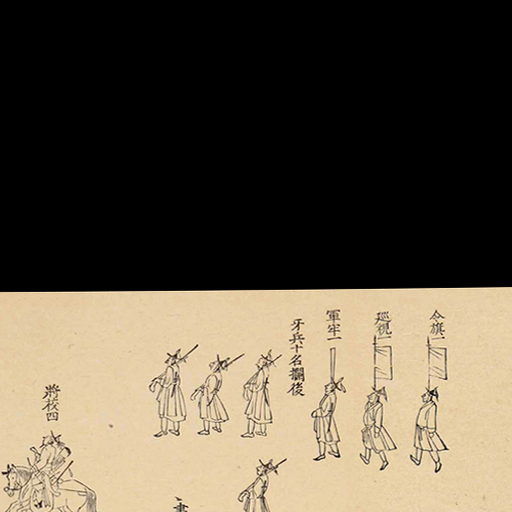 令旗一
巡視一
軍牢一
牙兵十名攔後
將校四